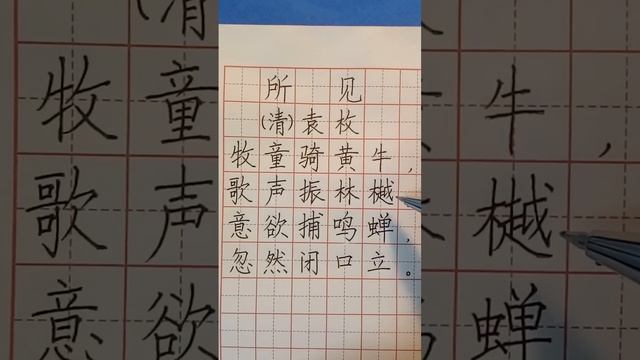 所见
(清)袁枚
牧童骑黄牛，
歌声振林樾
意欲捕鸣蝉，
忽然闭口立。